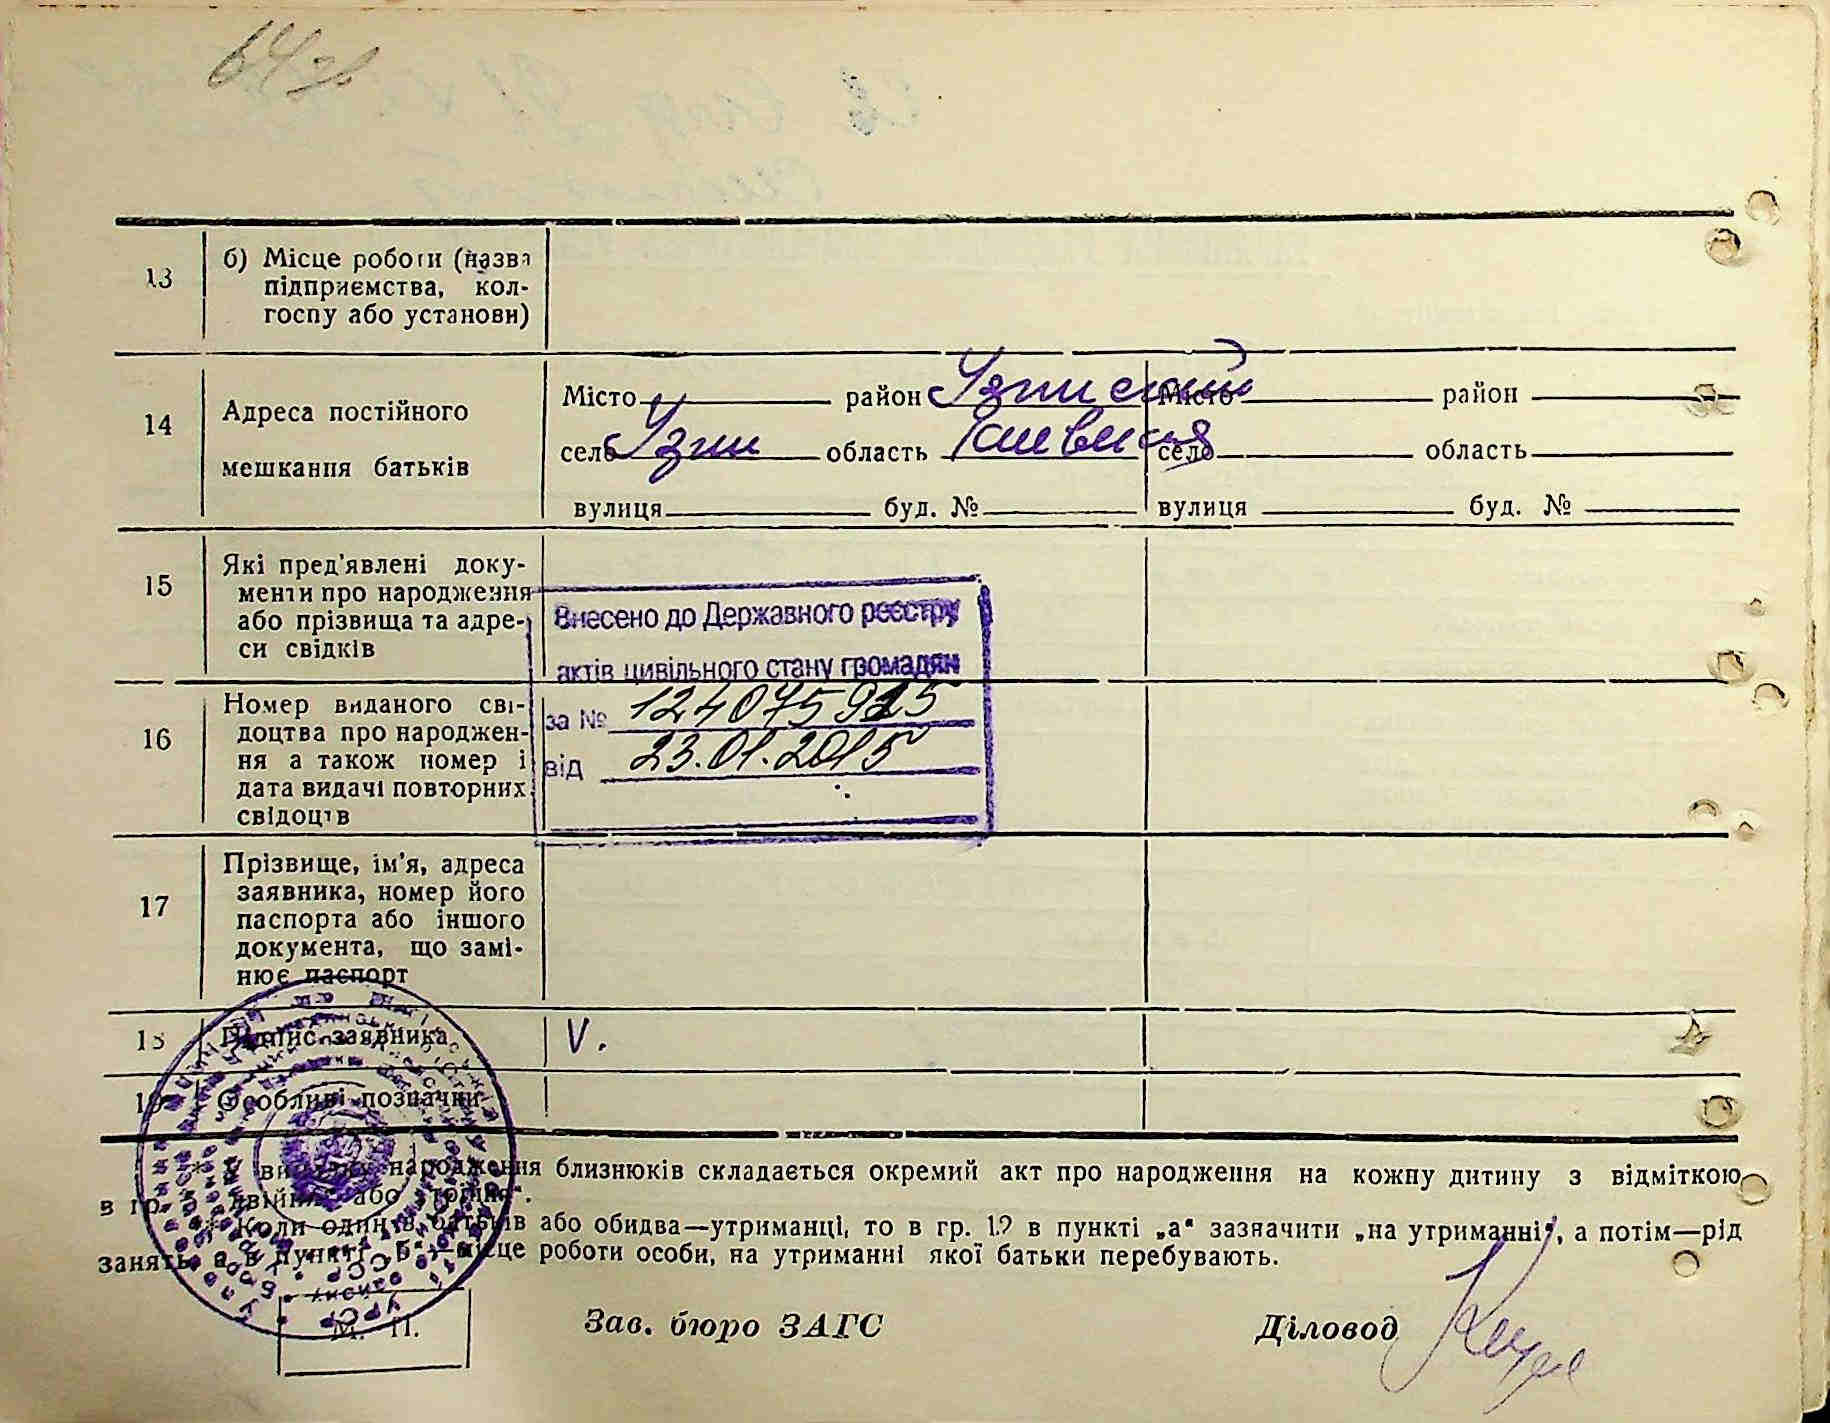 64
13 б) Місце роботи (назва
підприємства, кол-
госпу або установи)
14 Адреса постійного
мешкання батьків
Місто район Узинский Місто район
село Узин область Киевская село область
вулиця буд. № вулиця буд. №
15 Які пред'явлені доку-
менти про народження
або прізвища та адре-
си свідків
Внесено до Державного реєстру
актів цивільного стану громадян
за № 124075925
від 23.01.2015
16 Номер виданого сві-
доцтва про народжен-
ня а також номер і
дата видачі повторних
свідоцтв
17 Прізвище, ім'я, адреса
заявника, номер його
паспорта або іншого
документа, що замі-
нює паспорт
18 Підпис заявника V.
19 Особливі позначки
* У випадку народження близнюків складається окремий акт про народження на кожну дитину з відміткою
в гр. „двійня" або „трійня".
* Коли один із батьків або обидва—утриманці, то в гр. 12 в пункті „а" зазначити „на утриманні", а потім—рід
занять, а в пункті „б"—місце роботи особи, на утриманні якої батьки перебувають.
М. П.
Зав. бюро ЗАГС Діловод